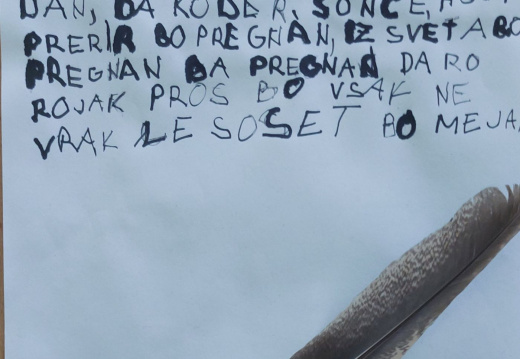 DAN, DA KODER SONCE, HO
PRERIR BO PREGNAN, IZ SVETA BO
PREGNAN DA PREGNAN DA RO
ROJAK PROS BO VSAK NE
VRAK LE SOSET BO MEJA,